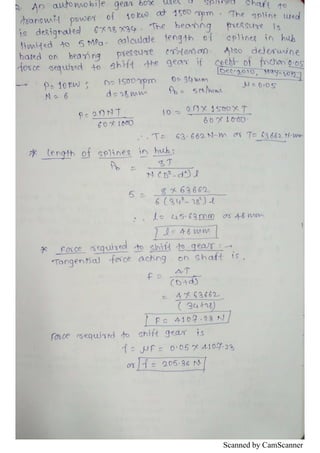 2. An automobile gear box uses a splined shaft to
transmit power of 10kW at 1500 rpm. The spline used
is designated 6×28×34. The bearing pressure is
limited to 5 MPa. calculate length of splines in hub
based on bearing pressure criterian. Also determine
force required to shift the gear if coeft of friction 0.05
→ P= 10KW ; n= 1500rpm D= 34mm μ=0.05
N= 6 d=28mm Pb = 5N/mm²
P= 2πNT / 60×1000 10 = 2π×1500×T / 60×1000
∴ T= 63.662 N-m or T= 63662 N-mm
* length of splines in hub:
Pb = 8T / N(D²-d²) l
5 = 8×63662 / 6(34²-28²) l
∴ l= 45.63mm or 46mm
l= 46mm
* Force required to shift to gear : →
Tangential force acting on shaft is,
F = 4T / (D+d)
= 4×63662 / (34+28)
F= 4107.23 N
Force required to shift gear is
f= μF = 0.05×4107.23
or f= 205.36 N
Scanned by CamScanner